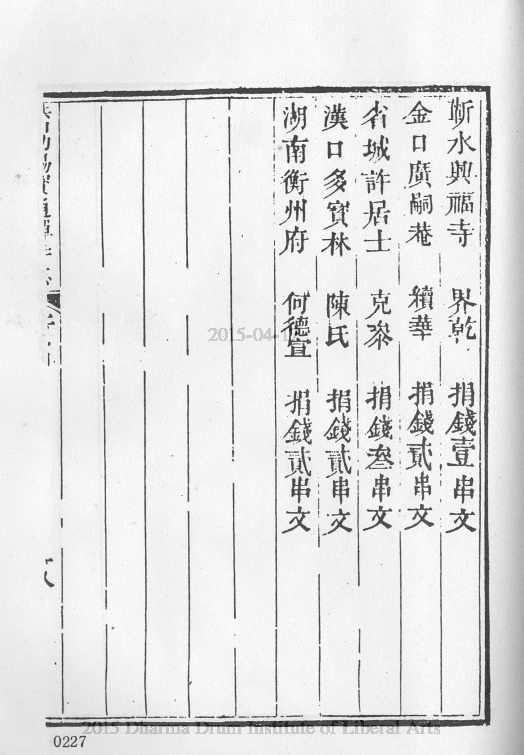 蘄水興福寺 界乾 捐錢壹串文
金口廣嗣菴 續華 捐錢貳串文
省城許居士 克泰 捐錢叁串文
漢口多寳林 陳氏 捐錢貳串文
湖南衡州府 何德宣 捐錢貳串文
2015-04-1
2015 Dharma Drum Institute of Liberal Arts
0227